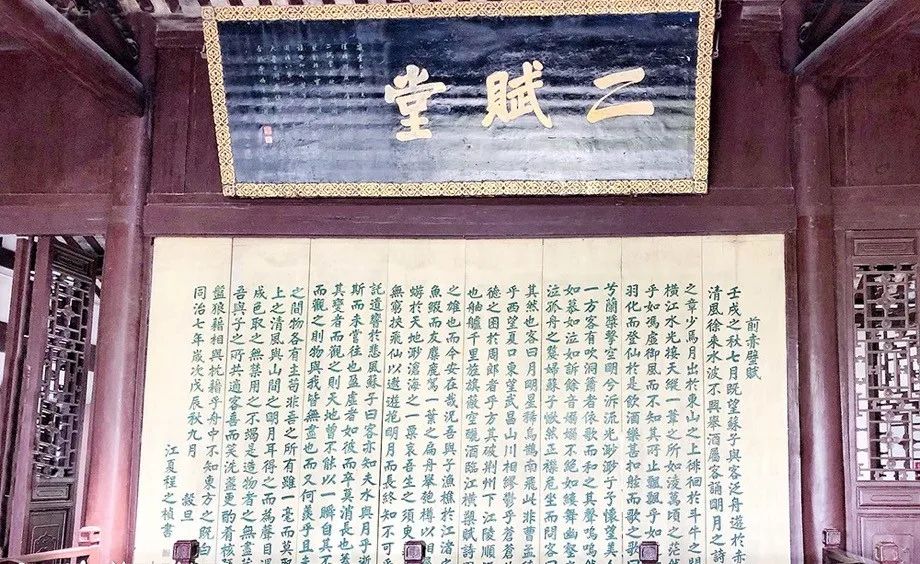 二賦堂
前赤壁賦
壬戌之秋七月既望蘇子與客泛舟遊於赤
清風徐來水波不興舉酒屬客誦明月之詩
之章少焉月出於東山之上徘徊於斗牛之間
橫江水光接天縱一葦之所如淩萬頃之茫
乎如馮虛御風而不知其所止飄飄乎如
羽化而登仙於是飲酒樂甚扣舷而歌之歌
兮蘭槳擊空明兮泝流光渺渺兮予懷望美
一方客有吹洞簫者依歌而和之其聲嗚嗚
如慕如泣如訴餘音嫋嫋不絕如縷舞幽壑
泣孤舟之嫠婦蘇子愀然正襟危坐而問客
其然也客曰月明星稀烏鵲南飛此非曹孟
乎西望夏口東望武昌山川相繆鬱乎蒼
德之困於周郎者乎方其破荊州下江陵順
也舳艫千里旌旗蔽空釃酒臨江橫槊賦詩
之雄也而今安在哉況吾與子漁樵於江渚
魚鰕而友麋鹿駕一葉之扁舟舉匏樽以相
蜉於天地渺滄海之一粟哀吾生之須臾
無窮挾飛仙以遨遊抱明月而長終知不可
託遺響於悲風蘇子曰客亦知夫水與月乎逝
斯而未嘗往也盈虛者如彼而卒莫消長也
其變者而觀之則天地曾不能以一瞬自其不
而觀之則物與我皆無盡也而又何羨乎且
之間物各有主苟非吾之所有雖一毫而莫
上之清風與山間之明月耳得之而為聲目遇
成色取之無禁用之不竭是造物者之無盡
吾與子之所共適客喜而笑洗盞更酌肴核
盤狼藉相與枕藉乎舟中不知東方之既白
同治七年歲次戊辰秋九月 穀旦
江夏程之楨書